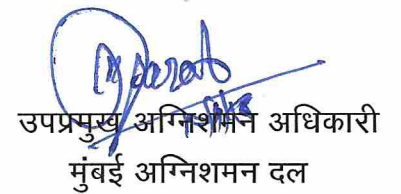 उपप्रमुख अग्निशमन अधिकारी
मुंबई अग्निशमन दल